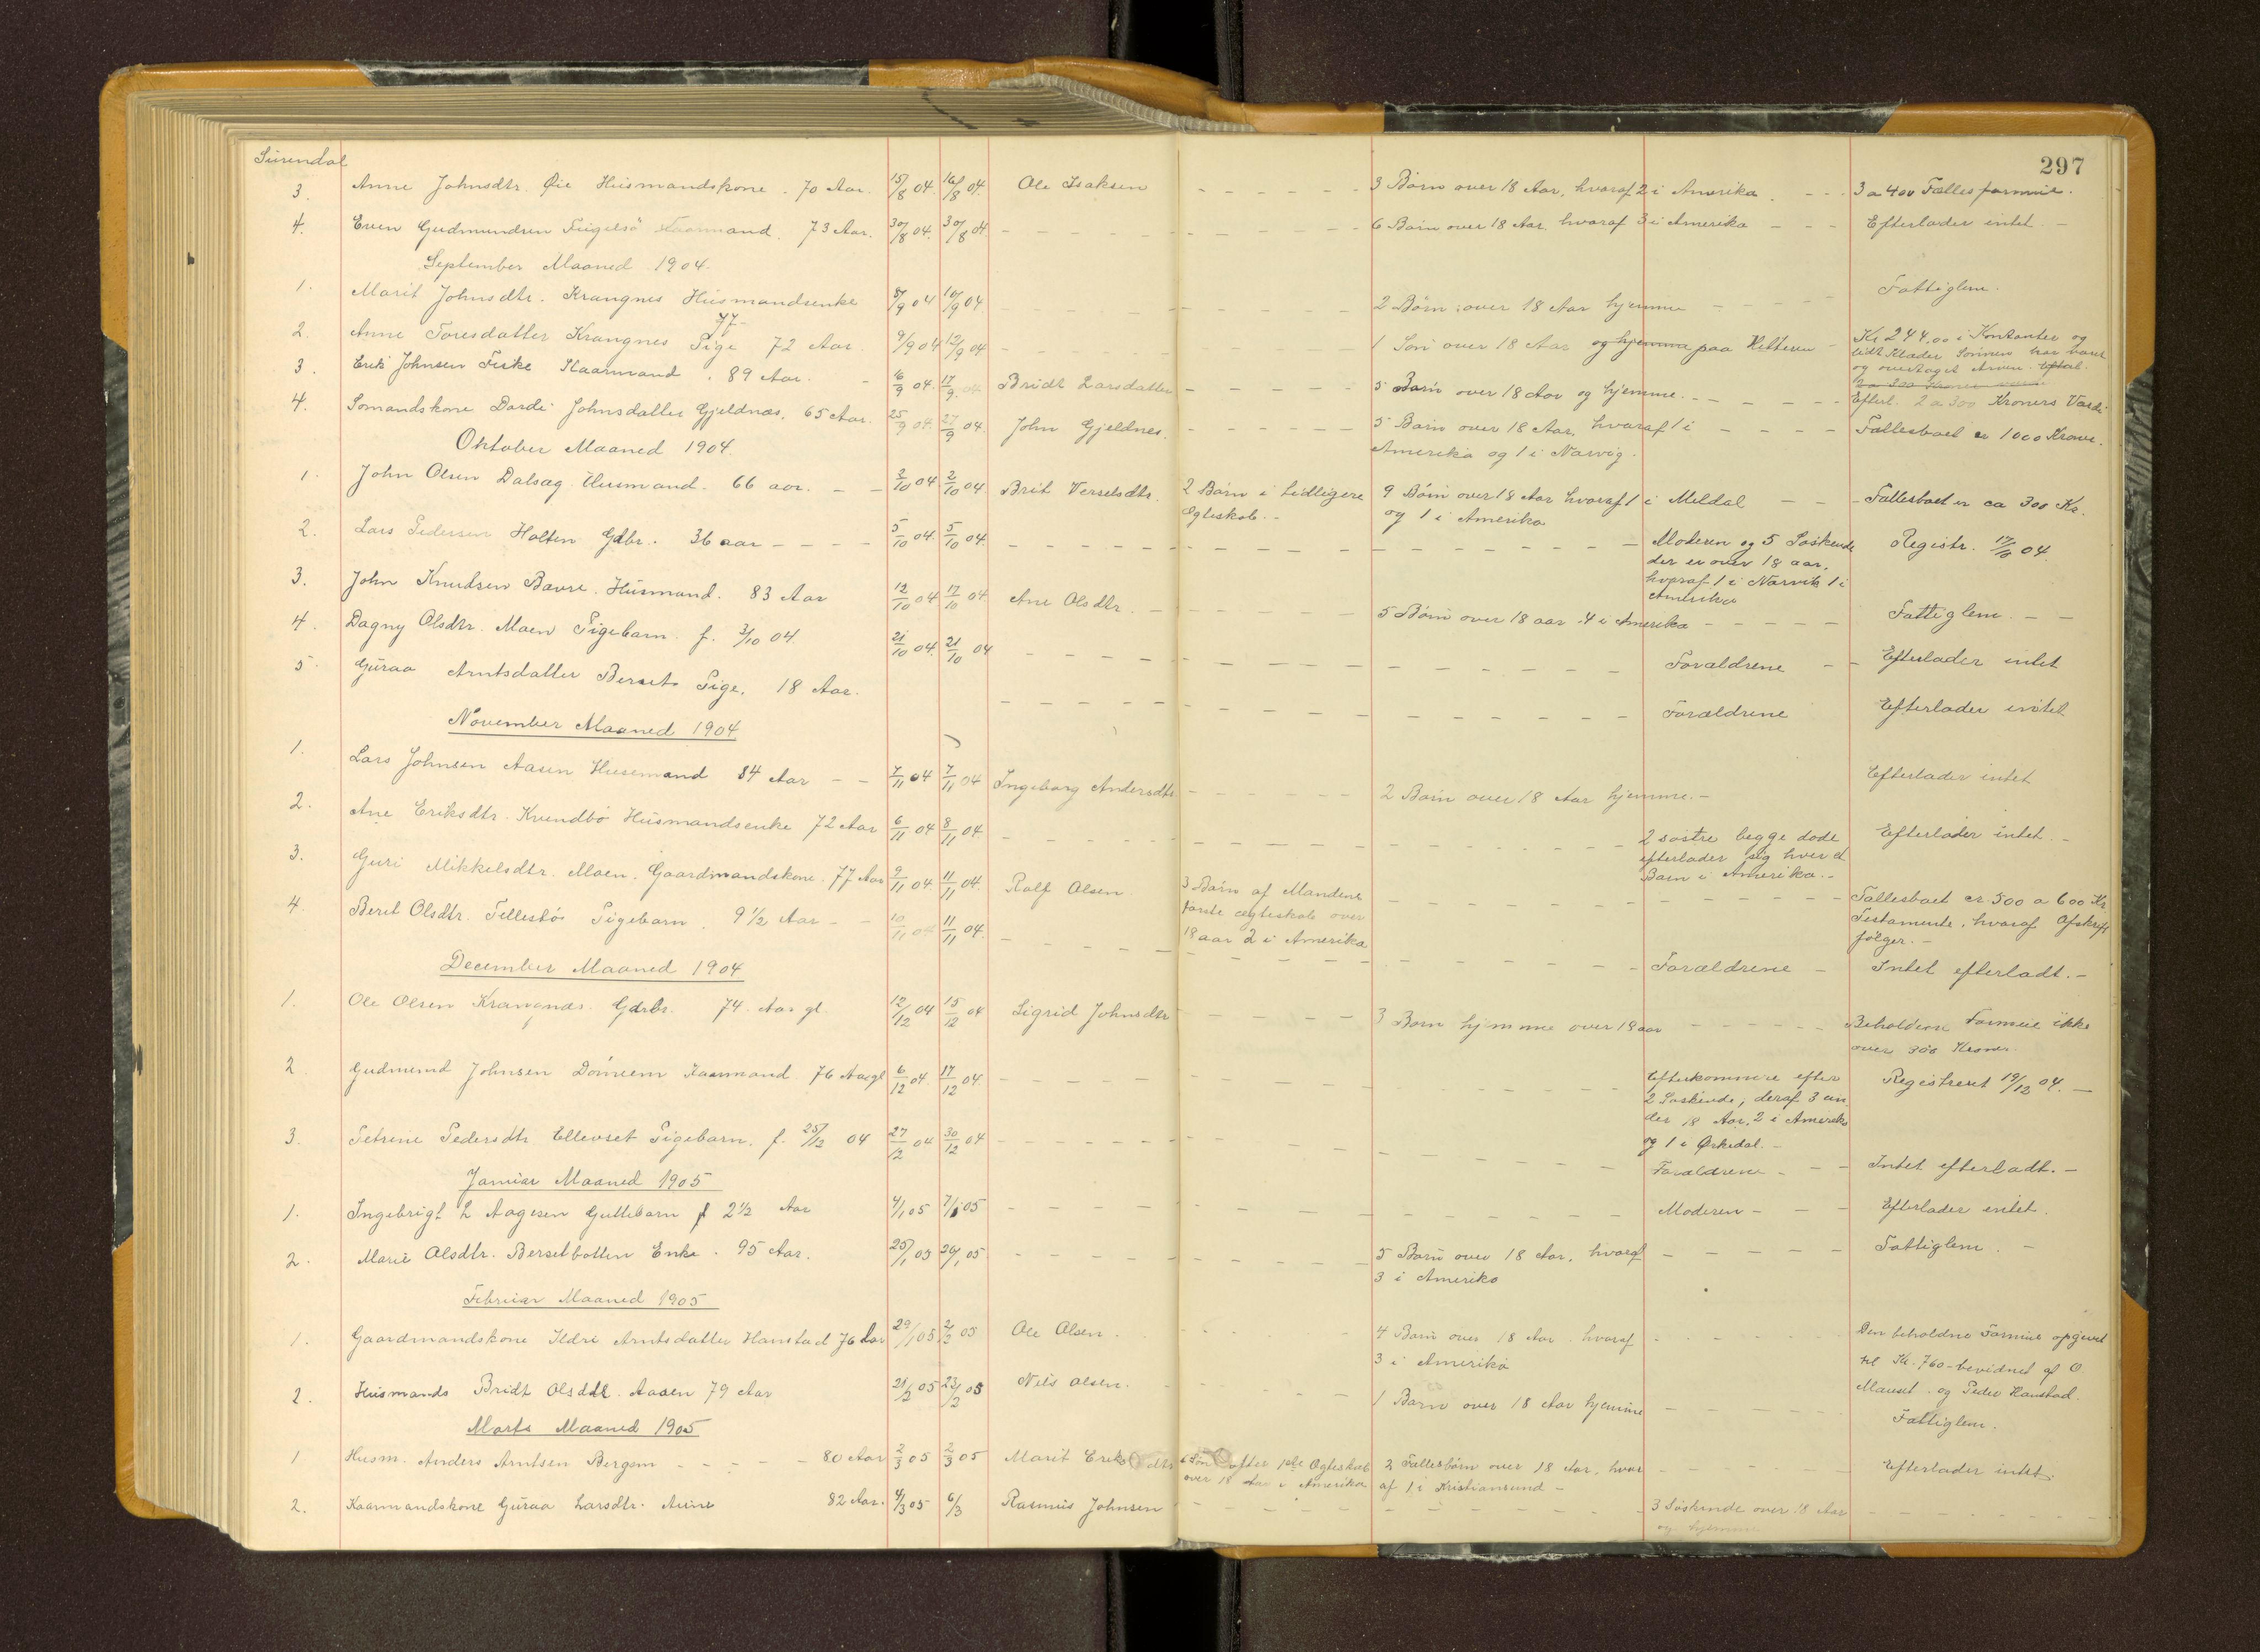 Surendal
297
3. Anne Johnsdtr. Øie Husmandskone. 70 Aar. 15/8 04. 16/8 04. Ole Isaksen - - - - - 3 Børn over 18 Aar, hvoraf 2 i Amerika. - - - 3 a 400 Fælles formue.
4. Even Gudmundsen Kaarmand. 73 Aar. 30/8 04. 30/8 04 - - - - - 6 Børn over 18 Aar. hvoraf 3 i Amerika - - - Efterlader intet. -
September Maaned 1904.
1. Marit Johnsdtr. Krangnes Husmandsenke 77 8/9 04 10/9 04. - - - - - 2 Børn over 18 Aar hjemme - - - - Fattiglem.
2. Anne Toresdatter Krangnes Pige 72 Aar. 9/9 04 12/9 04 - - - - - 1 Søn over 18 Aar og hjemme paa Hitteren - Kr 244,00 i Kontanter og
lidt Klæder Sønnen har
og overtaget Arven.
3. Erik Johnsen Fiske Kaarmand. 89 Aar. - 16/9 04. 17/9 04 Bridt Larsdatter - - - - - 5 Børn over 18 Aar og hjemme. - - - - Efterl. 2 a 300 Kroners Værdi
4. Somandskone Dardi Johnsdatter Gjeldnæs. 65 Aar. 25/9 04. 27/9 04. John Gjeldnes. - - - - - 5 Børn over 18 Aar, hvoraf 1 i - - - - Fællesboet er 1000 Kroner.
Amerika og 1 i Narvig.
Oktober Maaned 1904.
1. John Olsen Dalsæg Husmand. 66 aar. - - 2/10 04 2/10 04 Brit Verselsdtr. 2 Børn i tidligere 9 Børn over 18 Aar hvoraf 1 i Meldal - - - Fællesboet er ca 300 Kr.
Ægteskab. - og 1 i Amerika
2. Lars Pedersen Holten Gdbr. 36 aar - - - - 5/10 04. 5/10 04. - - - - - Moderen og 5 Søskende Registr. 17/10 04.
der er over 18 aar,
hvoraf 1 i Narvik 1 i
Amerika
3. John Knudsen Bævre. Husmand. 83 Aar 12/10 04 17/10 04 Ane Olsdtr. - - - - - 5 Børn over 18 aar. 4 i Amerika - - - - - Fattiglem. - -
4. Dagny Olsdtr. Moen Pigebarn. f. 3/10 04. 21/10 04. 21/10 04 - - - - - Forældrene - - Efterlader intet
5. Guraa Arntsdatter Berset Pige. 18 Aar. - - - - - Forældrene Efterlader intet
November Maaned 1904
1. Lars Johnsen Aasen Husemand 84 Aar - - 7/11 04 7/11 04 Ingeborg Andersdtr - - - - - 2 Børn over 18 Aar hjemme. - Efterlader intet
2. Ane Eriksdtr. Kvendbø Husmandsenke 72 Aar 6/11 04 8/11 04. - - - - - 2 søstre begge døde Efterlader intet. -
efterlader sig hver et
Barn i Amerika. -
3. Guri Mikkelsdtr. Moen. Gaardmandskone. 77 Aar 9/11 04. 11/11 04. Rolf Olsen. 3 Børn af Mandens - - - - - Fællesboet er 500 a 600 Kr
første ægteskab over Testamente, hvoraf Afskrift
18 aar 2 i Amerika følger. -
4. Berit Olsdtr. Tellesbø Pigebarn. 9 1/2 Aar - - 10/11 04 11/11 04. - - - - - Forældrene - Intet efterladt. -
December Maaned 1904
1. Ole Olsen Krangnæs. Gdrbr. 74. Aar gl. 12/12 04 15/12 04 Sigrid Johnsdtr - - - - - 3 Børn hjemme over 18 aar - - - - - Beholden Formue ikke
over 300 Kroner.
2 Gudmund Johnsen Kaarmand 76 Aar gl 6/12 04. 17/12 04. - - - - - Efterkommere efter Registreret 19/12 04. -
2 Søskende, deraf 3 un
der 18 Aar, 2 i Amerika
og 1 i Ørkedal. -
3. Petrine Pedersdtr Ellevset Pigebarn. f. 25/12 04 27/12 04 30/12 04 - - - - - Forældrene - - - Intet efterladt. -
Januar Maaned 1905
1. Ingebrigt L Aagesen Guttebarn f 2 1/2 Aar 4/1 05 7/1 05 - - - - - Moderen - - - Efterlader intet.
2. Marie Olsdtr. Bersetbotten Enke. 95 Aar. 25/1 05 26/1 05 - - - - - 5 Børn over 18 Aar, hvoraf - - - - - Fattiglem. -
3 i Amerika
Februar Maaned 1905
1. Gaardmandskone Ildri Arntsdatter Hanstad 76 Aar 29/1 05 2/2 05 Ole Olsen. - - - - - 4 Børn over 18 Aar hvoraf - - - - Den beholdne Formue opgivet
3 i Amerika til Kr. 760 - bevidnet af O
Mauset. og Peder Hanstad.
2. Husmands Bridt Olsdtr. Aasen 79 Aar 21/2 05 23/2 05 Nels Olsen. - - - - 1 Barn over 18 Aar hjemme - - - - - Fattiglem.
Marts Maaned 1905
1 Husm. Anders Arntsen Bergem - - - - - 80 Aar 2/3 05 2/3 05 Marit Eriksdtr efter 1ste Ægteskab 2 Fællesbørn over 18 Aar, hvor - - - - - Efterlader intet.
over 18 Aar i Amerika af 1 i Kristiansund -
2. Kaarmandskone Guraa Larsdtr. Aune 82 Aar. 4/3 05 6/3 Rasmus Johnsen - - - - - 3 Søskende over 18 Aar - - - - -
og hjemme